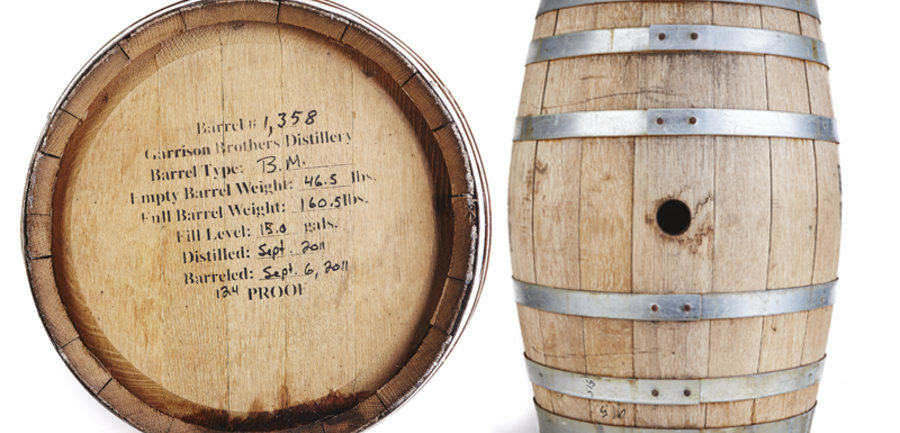 Barrel # 1,358
Garrison Brothers Distillery
Barrel Type: B.M.
Empty Barrel Weight: 46.5 lbs.
Full Barrel Weight: 160.5 lbs.
Fill Level: 15.0 gals.
Distilled: Sept. 2011
Barreled: Sept. 6, 2011
124 PROOF